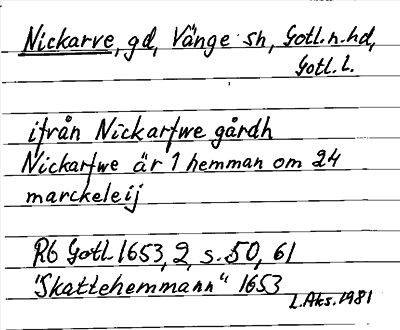 Nickarve, gd, Vänge sn, Gotl. n. hd,
Gotl. l.
ifrån Nickarfwe gårdh
Nickarfwe är 1 hemman om 24
marckeleij
Rb Gotl. 1653, 2, s. 50, 61
"Skattehemmann" 1653
L. Aks. 1981